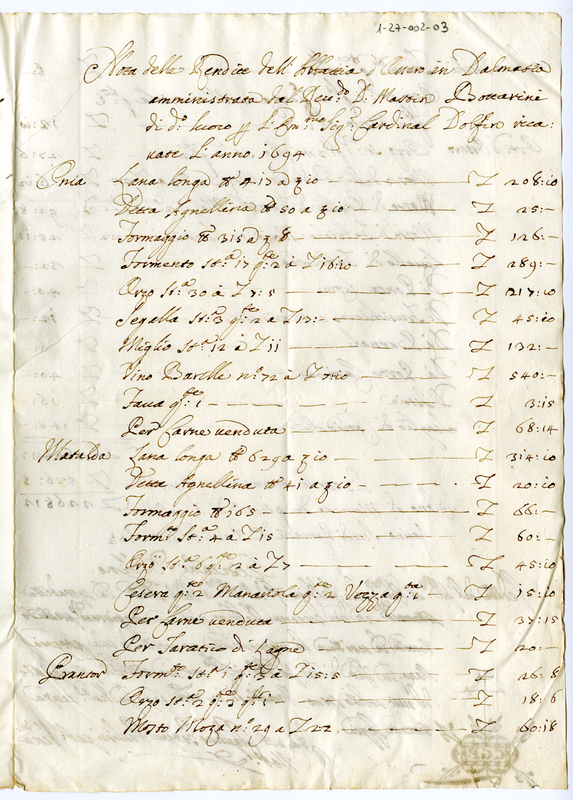 1-27-002-03
Nota delle Rendite dell' Abbatia d'Ossero in Dalmatia
amministrata dal Reu:do D: Martin Bottarini
di d:o luoco p l'Em:mo Sig:r Cardinal Dolfin rica-
uate L'anno 1694
Onia Lana longa ℔ 417 a ß 10 — Z 208:10
Detta Agnellina ℔ 50 a ß 10 — Z 25:—
Formaggio ℔ 315 a ß 8 — Z 126:—
Formento st:a 17 q:te 2 à Z 16:10 — Z 289:—
Orzo St:a 30 à Z 7:5 — Z 217:10
Segalla St:a 3 q:te 2 a Z 13:— — Z 45:10
Miglio St:a 12 à Z 11 — Z 132:—
Vino Barelle n:o 72 à Z 7:10 — Z 540:—
Faua q:te 1 — Z 3:15
Per Carne uenduta — Z 68:14
Matalda Lana longa ℔ 629 a ß 10 — Z 314:10
Detta Agnellina ℔ 41 a ß 10 — Z 20:10
Formaggio ℔ 165 — Z 66:—
Form:to St:a 4 à Z 15 — Z 60:—
Orzo st:a 6 q:te 2 à Z 7 — Z 45:10
q:te 2 q:te 2 q:ta 1 — Z 15:10
Per Carne uenduta — Z 37:15
Per di Legne — Z 20:—
Form:to St:a 1 q:te 3 a Z 15:5 — Z 26:8
Orzo St:a 2 q:te 2 — Z 18:6
Mosto Moza n:o 29 a Z 22 — Z 60:18